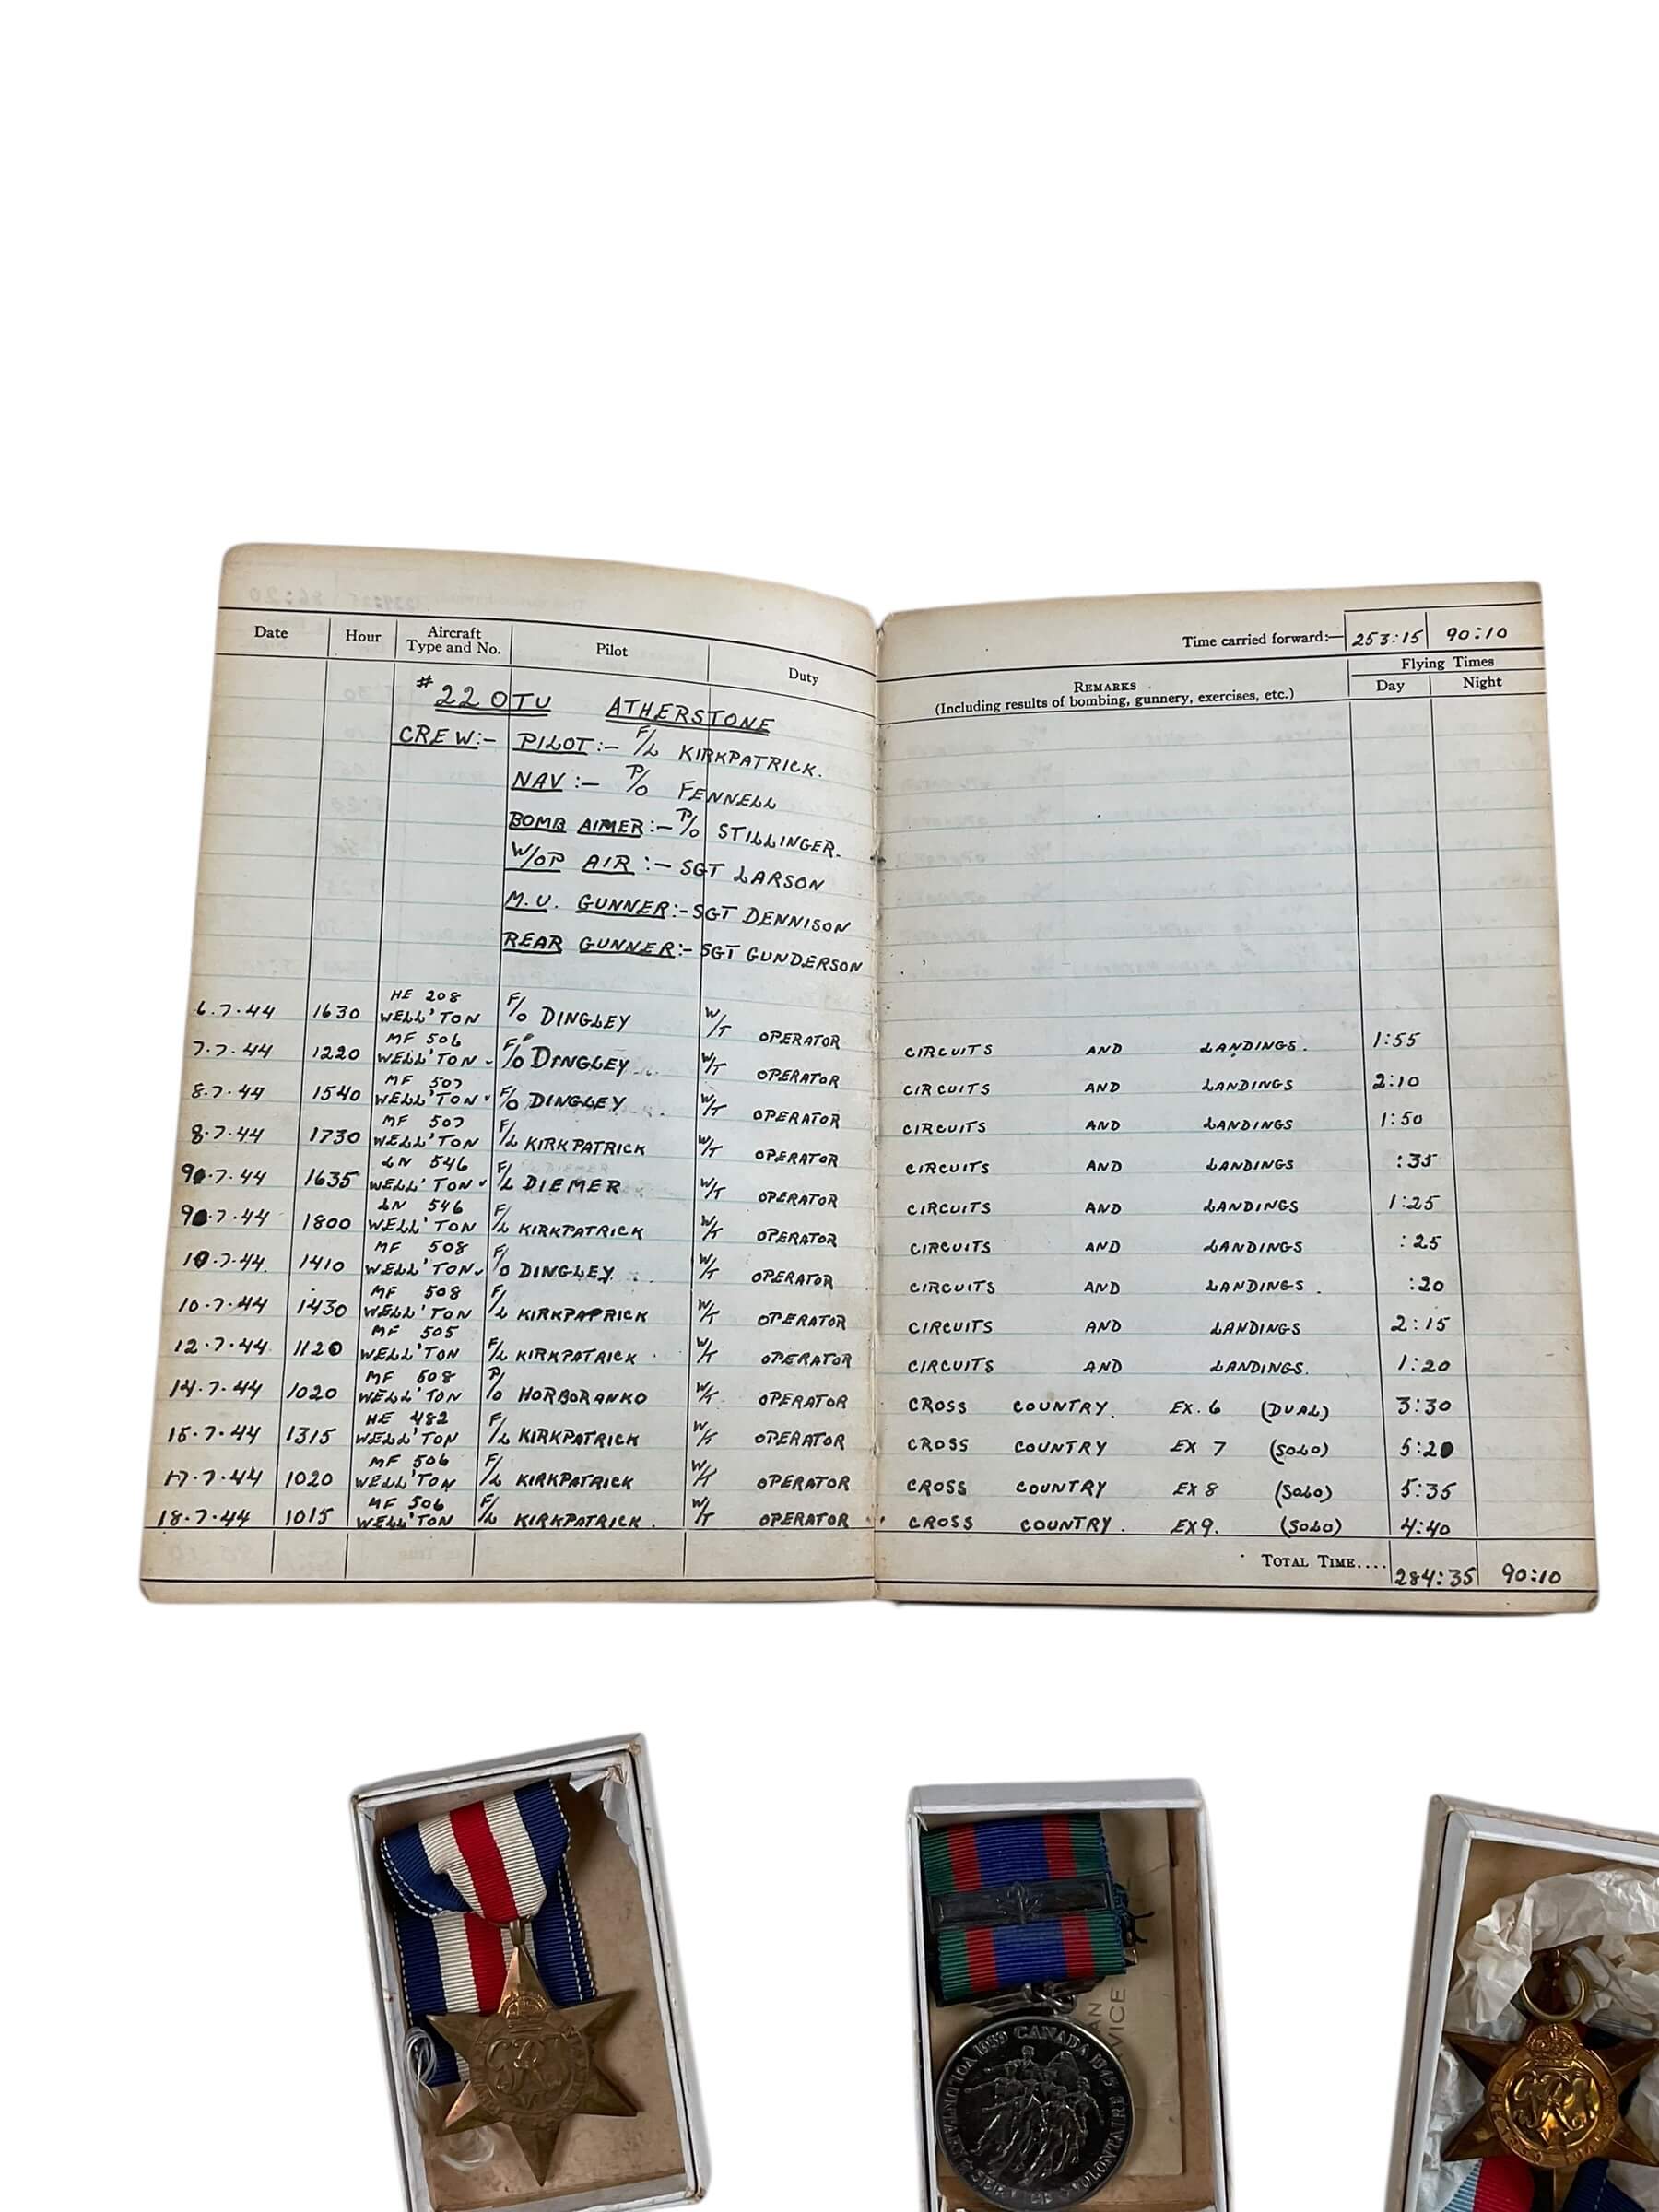 Date Hour Aircraft Type and No. Pilot Duty
Time carried forward:— 253:15 90:10
REMARKS (Including results of bombing, gunnery, exercises, etc.) Flying Times Day Night
#22 OTU ATHERSTONE
CREW:- PILOT:- F/L KIRKPATRICK.
NAV:- P/O FENNELL
BOMB AIMER:- P/O STILLINGER.
W/OP AIR:- SGT LARSON
M.U. GUNNER:- SGT DENNISON
REAR GUNNER:- SGT GUNDERSON
6.7.44 1630 HE 208 WELL'TON F/O DINGLEY W/T OPERATOR CIRCUITS AND LANDINGS. 1:55
7.7.44 1220 MF 506 WELL'TON F/O DINGLEY W/T OPERATOR CIRCUITS AND LANDINGS 2:10
8.7.44 1540 MF 507 WELL'TON F/O DINGLEY W/T OPERATOR CIRCUITS AND LANDINGS 1:50
8.7.44 1730 MF 507 WELL'TON F/L KIRKPATRICK W/T OPERATOR CIRCUITS AND LANDINGS :35
9.7.44 1635 LN 546 WELL'TON F/L DIEMER W/T OPERATOR CIRCUITS AND LANDINGS 1:25
9.7.44 1800 LN 546 WELL'TON F/L KIRKPATRICK W/T OPERATOR CIRCUITS AND LANDINGS :25
10.7.44. 1410 MF 508 WELL'TON F/O DINGLEY W/T OPERATOR CIRCUITS AND LANDINGS. :20
10.7.44 1430 MF 508 WELL'TON F/L KIRKPATRICK W/T OPERATOR CIRCUITS AND LANDINGS 2:15
12.7.44 1120 MF 505 WELL'TON F/L KIRKPATRICK W/T OPERATOR CIRCUITS AND LANDINGS. 1:20
14.7.44 1020 MF 508 WELL'TON P/O HORBORANKO W/T OPERATOR CROSS COUNTRY. EX. 6 (DUAL) 3:30
15.7.44 1315 HE 482 WELL'TON F/L KIRKPATRICK W/T OPERATOR CROSS COUNTRY EX 7 (SOLO) 5:20
17.7.44 1020 MF 506 WELL'TON F/L KIRKPATRICK W/T OPERATOR CROSS COUNTRY EX 8 (SOLO) 5:35
18.7.44 1015 MF 506 WELL'TON F/L KIRKPATRICK. W/T OPERATOR CROSS COUNTRY. EX9. (SOLO) 4:40
TOTAL TIME.... 284:35 90:10
1939 CANADA 1945
VOLUNTARY SERVICE
VOLONTAIRE
VICE